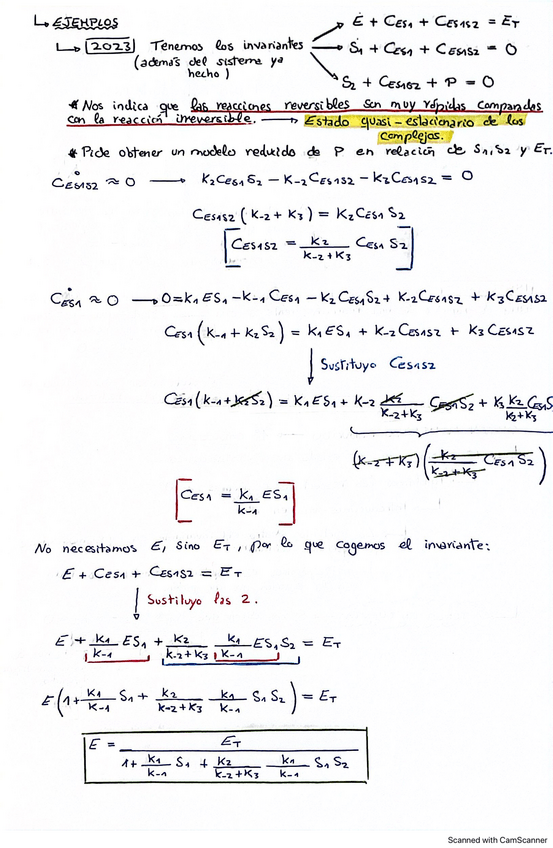 ↳ EJEMPLOS
↳ 2023 Tenemos los invariantes (además del sistema ya hecho)
Ė + ĊES1 + ĊES1S2 = ĖT
Ṡ1 + ĊES1 + ĊES1S2 = 0
Ṡ2 + ĊES1S2 + Ṗ = 0
* Nos indica que las reacciones reversibles son muy rápidas comparadas
con la reacción irreversible. → Estado quasi-estacionario de los
complejos.
* Pide obtener un modelo reducido de P en relación de S1, S2 y ET.
ĊES1S2 ≈ 0 → K2CES1S2 - K-2CES1S2 - K3CES1S2 = 0
CES1S2 (K-2 + K3) = K2CES1 S2
[CES1S2 = K2/(K-2+K3) CES1 S2]
ĊES1 ≈ 0 → 0 = K1 ES1 - K-1 CES1 - K2 CES1S2 + K-2CES1S2 + K3CES1S2
CES1 (K-1 + K2 S2) = K1ES1 + K-2 CES1S2 + K3 CES1S2
↓ Sustituyo CES1S2
CES1 (K-1 + K2S2) = K1ES1 + K-2 K2/(K-2+K3) CES1S2 + K3 K2/(K2+K3) CES1S
(K-2 + K3) (K2/(K-2+K3) CES1 S2)
[CES1 = K1/K-1 ES1]
No necesitamos E, sino ET, por lo que cogemos el invariante:
E + CES1 + CES1S2 = ET
↓ Sustituyo las 2.
E + K1/K-1 ES1 + K2/(K-2+K3) K1/K-1 ES1S2 = ET
E (1 + K1/K-1 S1 + K2/(K-2+K3) K1/K-1 S1 S2) = ET
E = ET/(1 + K1/K-1 S1 + K2/(K-2+K3) K1/K-1 S1 S2)
Scanned with CamScanner